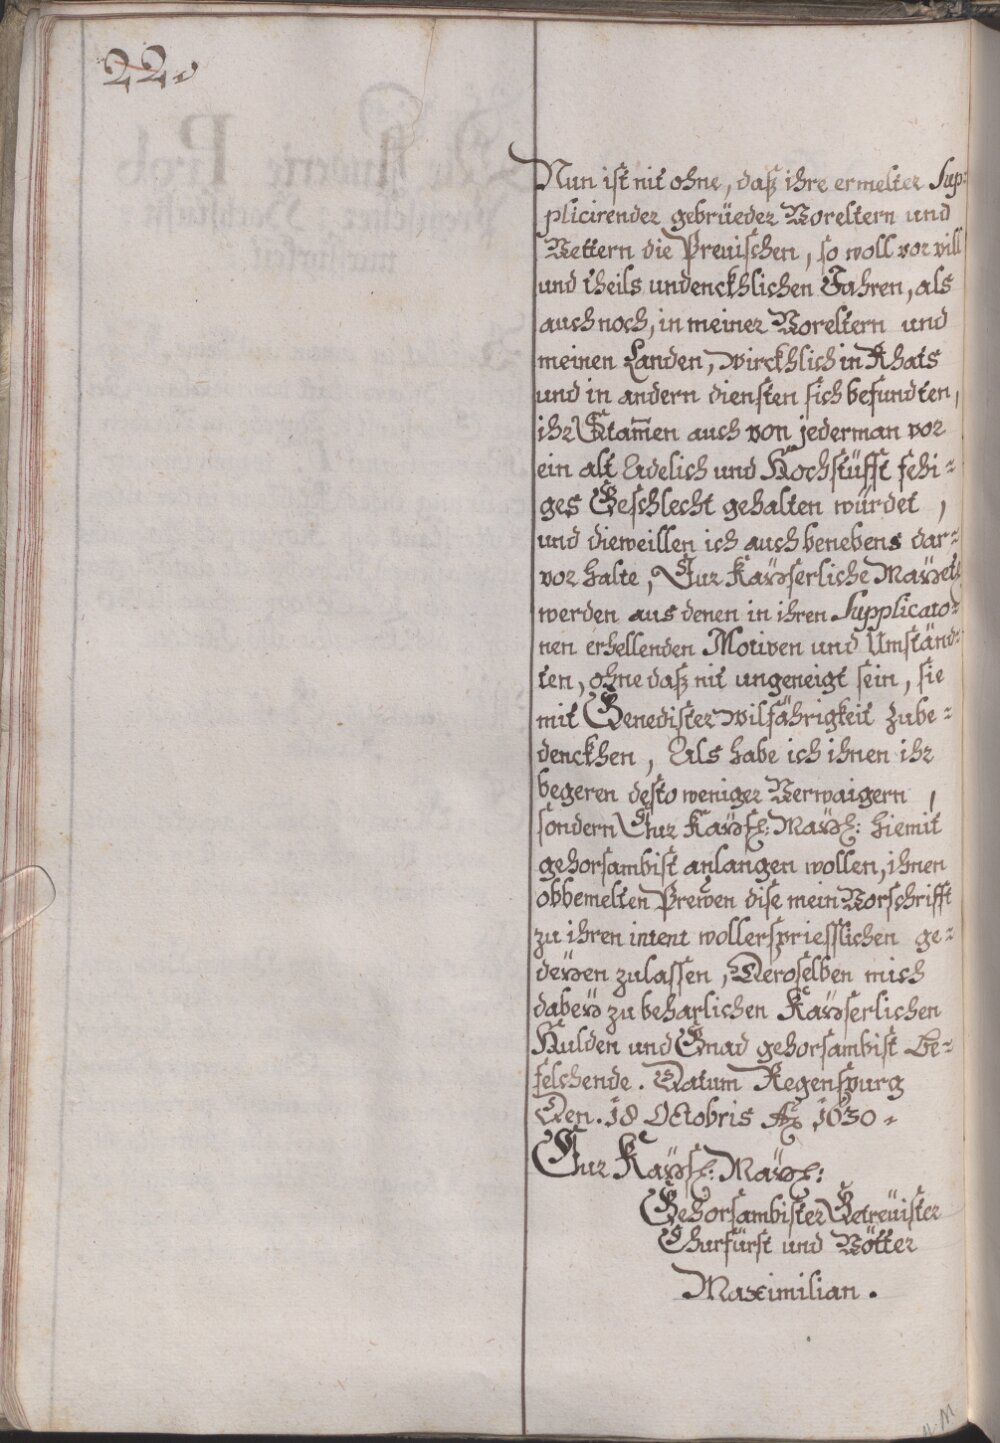 22.
Nun ist nit ohne, daß ihre ermelter Sup:
plicirender gebrüeder Voreltern und
Vettern die Preuischen, so woll vor vill
und theils undenckhlichen Jahren, als
auch noch, in meiner Voreltern und
meinen Landen, wirckhlich in Rhats
und in andern diensten sich befundten,
ihr Stam̄en auch von jederman vor
ein alt Adelich und Hochstüfft fehi=
ges Geschlecht gehalten würdet,
und dieweillen ich auch benebens dar=
vor halte, Eur Kaÿserliche Maÿet:
werden aus denen in ihren Supplicatio=
nen erhellenden Motiven und Umständ=
ten, ohne daß nit ungeneigt sein, sie
mit Genedister wilfährigkeit zube=
denckhen, Als habe ich ihnen ihr
begeren desto weniger Verwaigern,
sondern Eur Kaÿsl: Maÿl: hiemit
gehorsambist anlangen wollen, ihnen
obbemelten Prewen dise mein Vorschrifft
zu ihren intent wollerspriesslichen ge=
deÿen zulassen, Deroselben mich
dabeÿ zu beharlichen Kaÿserlichen
Hulden und Gnad gehorsambist be=
felchende. Datum Regenspurg
Den. 18 Octobris Ao 1630.
Eur Kaÿsl: Maÿl:
Gehorsambister Getreüister
Churfürst und Vötter
Maximilian.